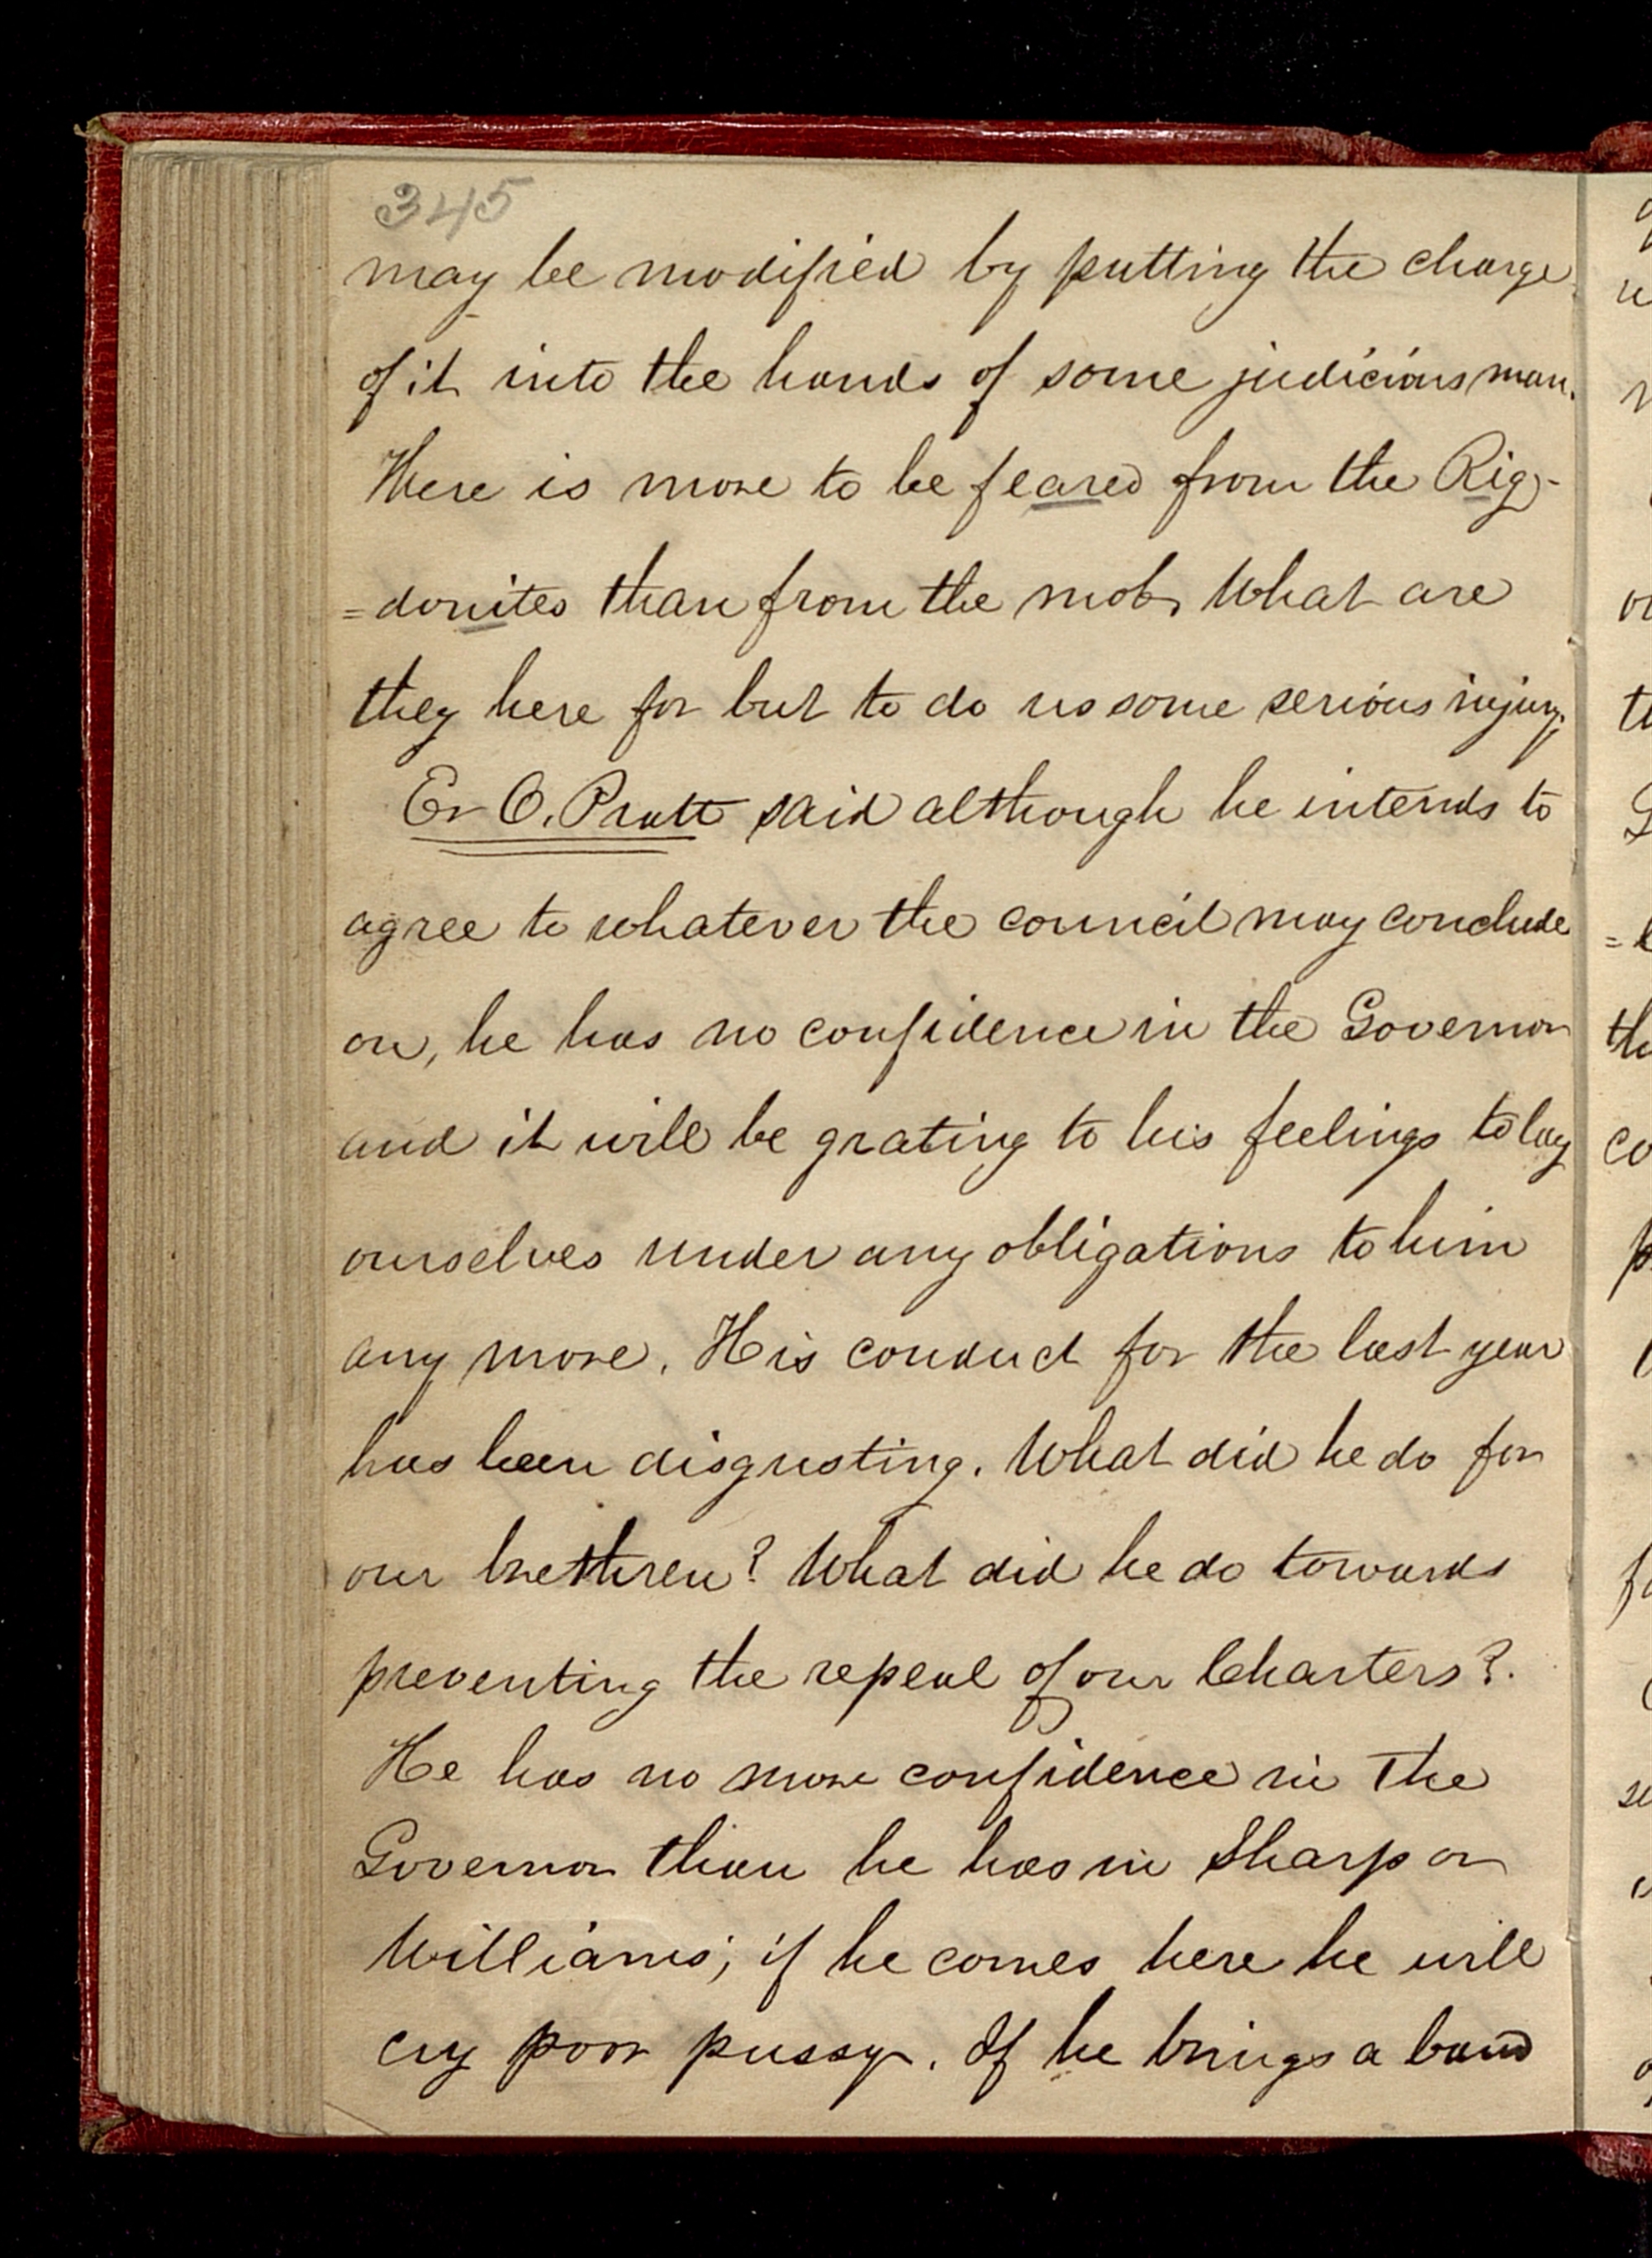 345
may be modified by putting the charge
of it into the hands of some judicious man.
There is more to be feared from the Rig-
=donites than from the mob, What are
they here for but to do us some serious injury.
Er O. Pratt said although he intends to
agree to whatever the council may conclude
on, he has no confidence in the Governor
and it will be grating to his feelings to lay
ourselves under any obligations to him
any more. His conduct for the last year
has been disgusting. What did he do for
our brethren? What did he do towards
preventing the repeal of our Charters?.
He has no more confidence in the
Governor than he has in Sharp or
Williams; if he comes here he will
cry poor pussy. If he brings a band